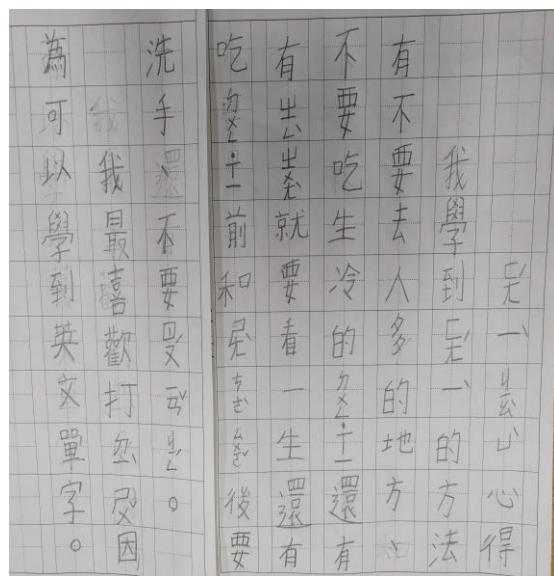 ㄈㄤˊㄧˋㄐㄧㄠˋㄩˋ心得
我學到ㄈㄤˊㄧˋ的方法
有不要去人多的地方、
不要吃生冷的ㄉㄨㄥㄒㄧ還有
有ㄓㄥˋㄓㄨㄤˋ就要看一生還有
吃ㄉㄨㄥㄒㄧ前和ㄕㄤˋㄘㄜˋㄙㄨㄛˇ後要
洗手、還不要ㄖㄡˊㄧㄢˇㄐㄧㄥ。
我最禧歡打ㄍㄨㄞˋㄕㄡˋ因
為可以學到英文單字。